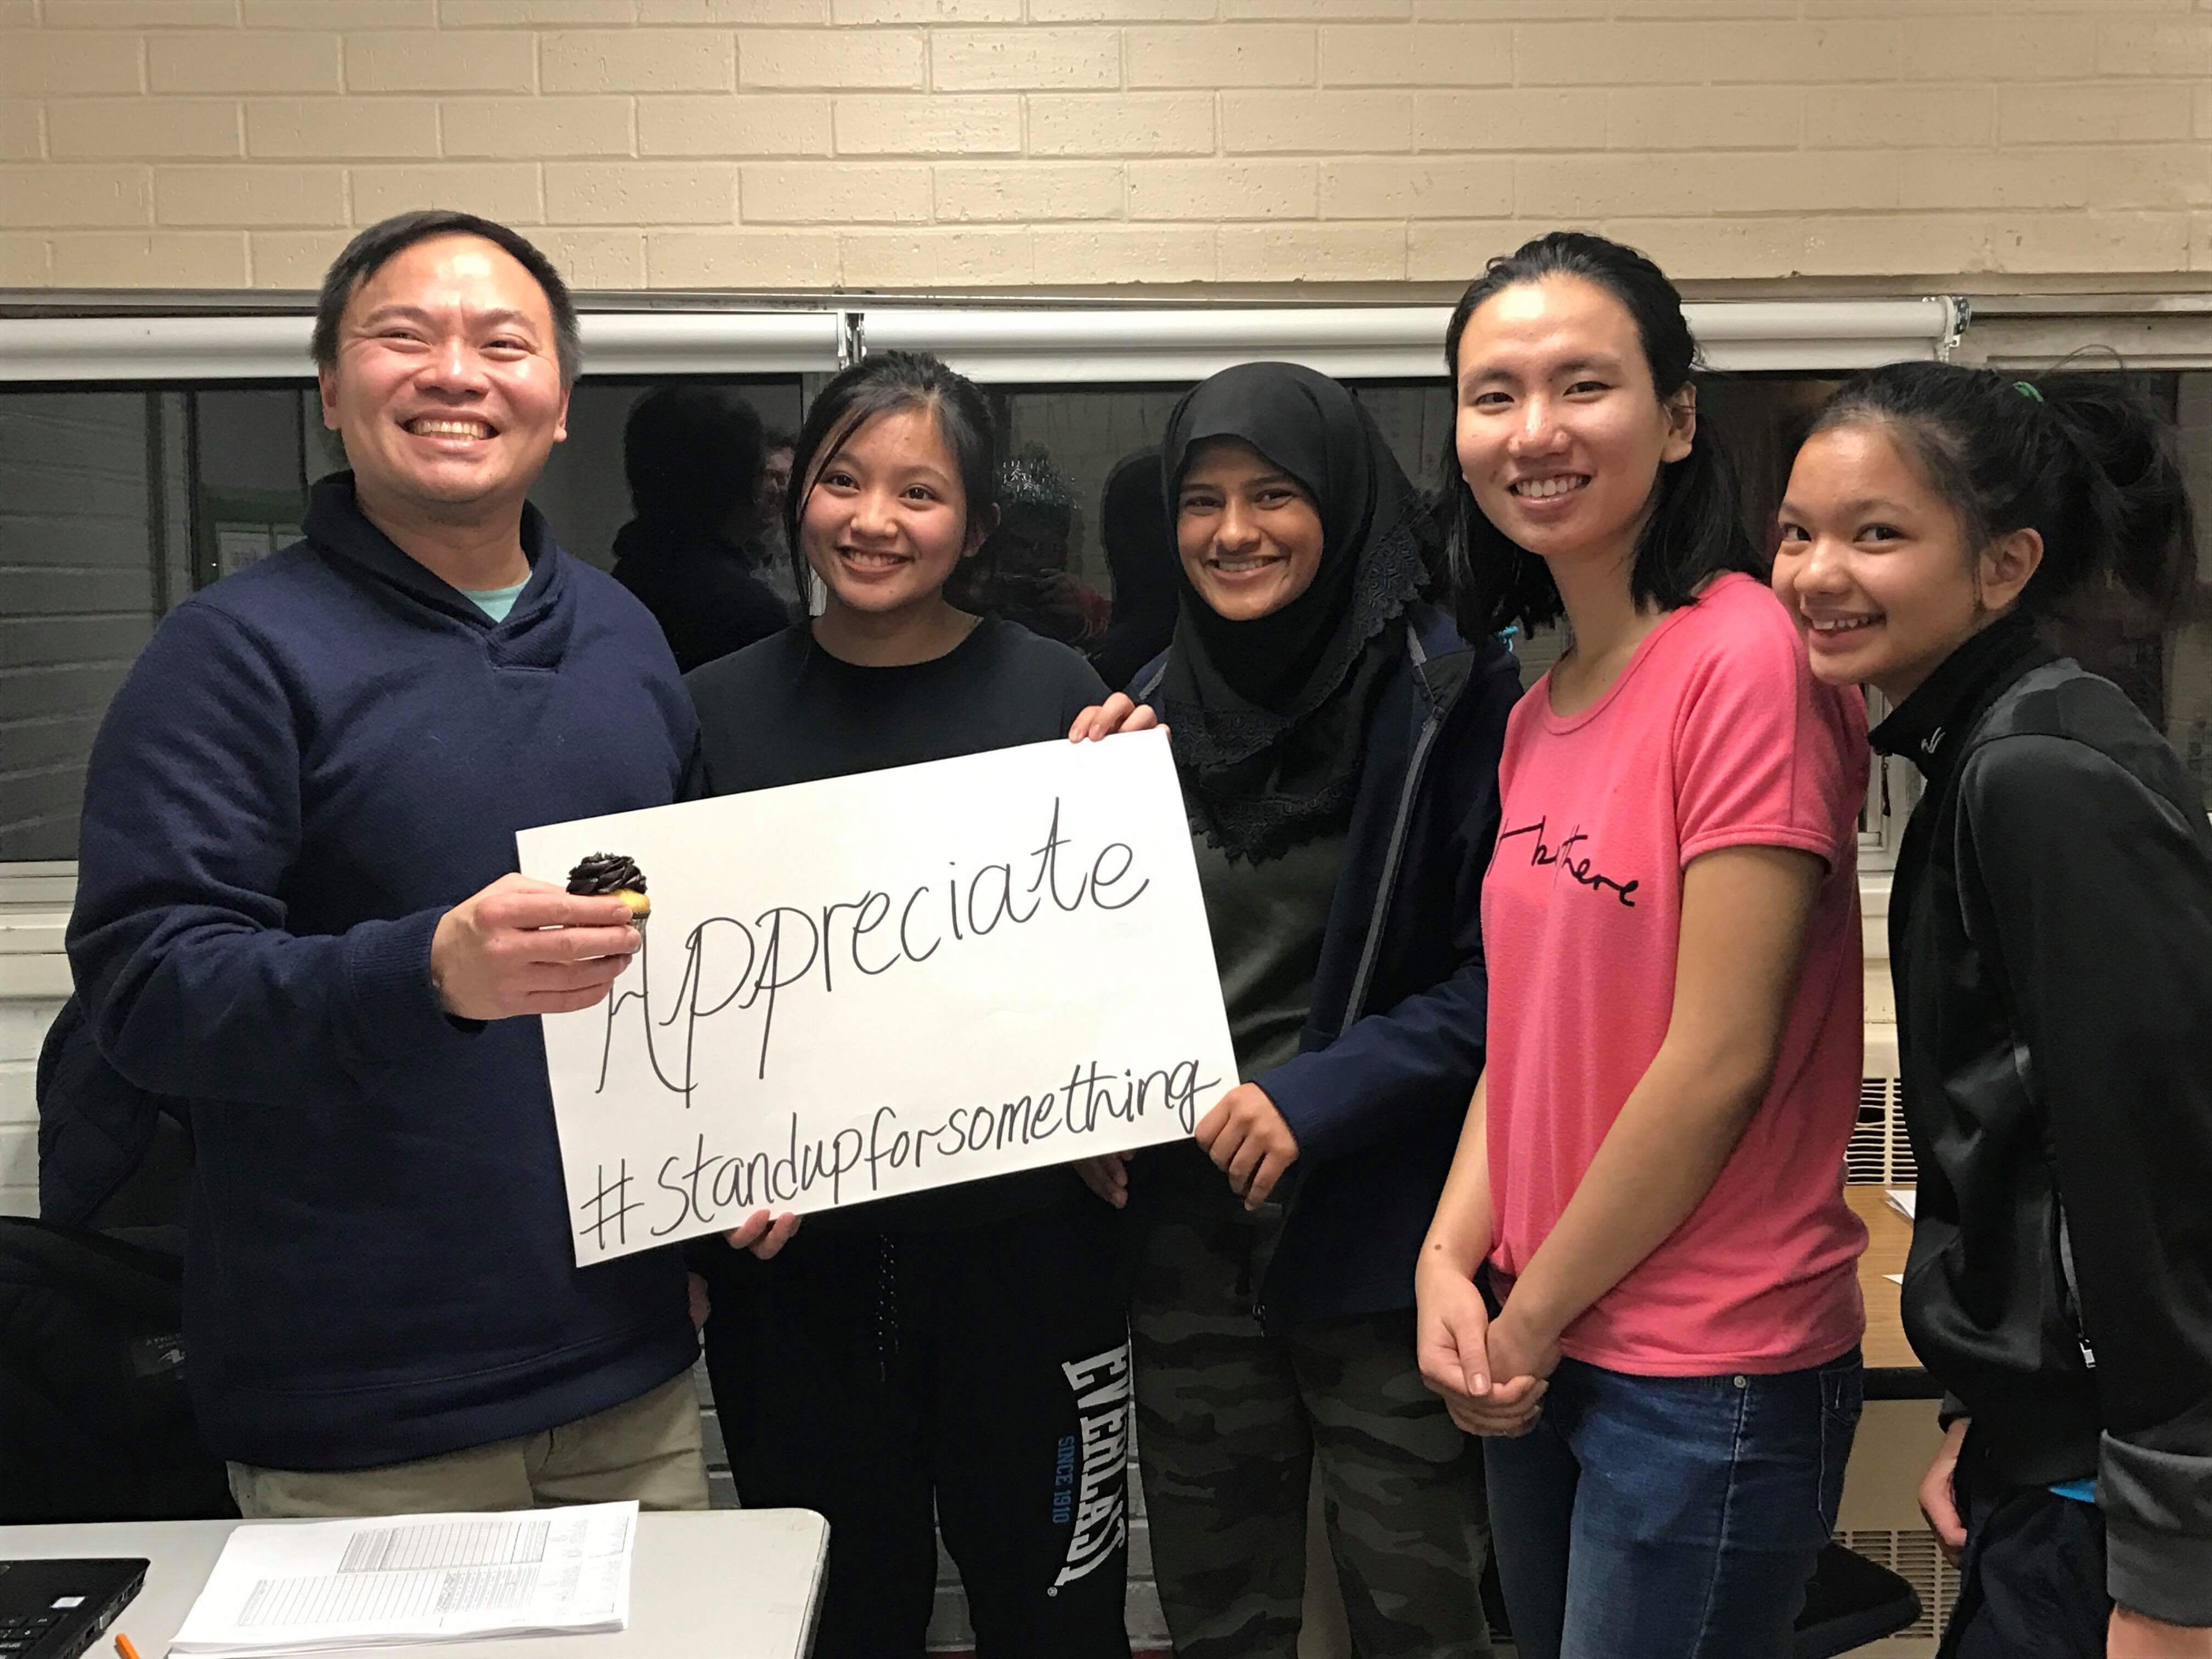 Appreciate
#standupforsomething
there
EVERLAST
SINCE 1910